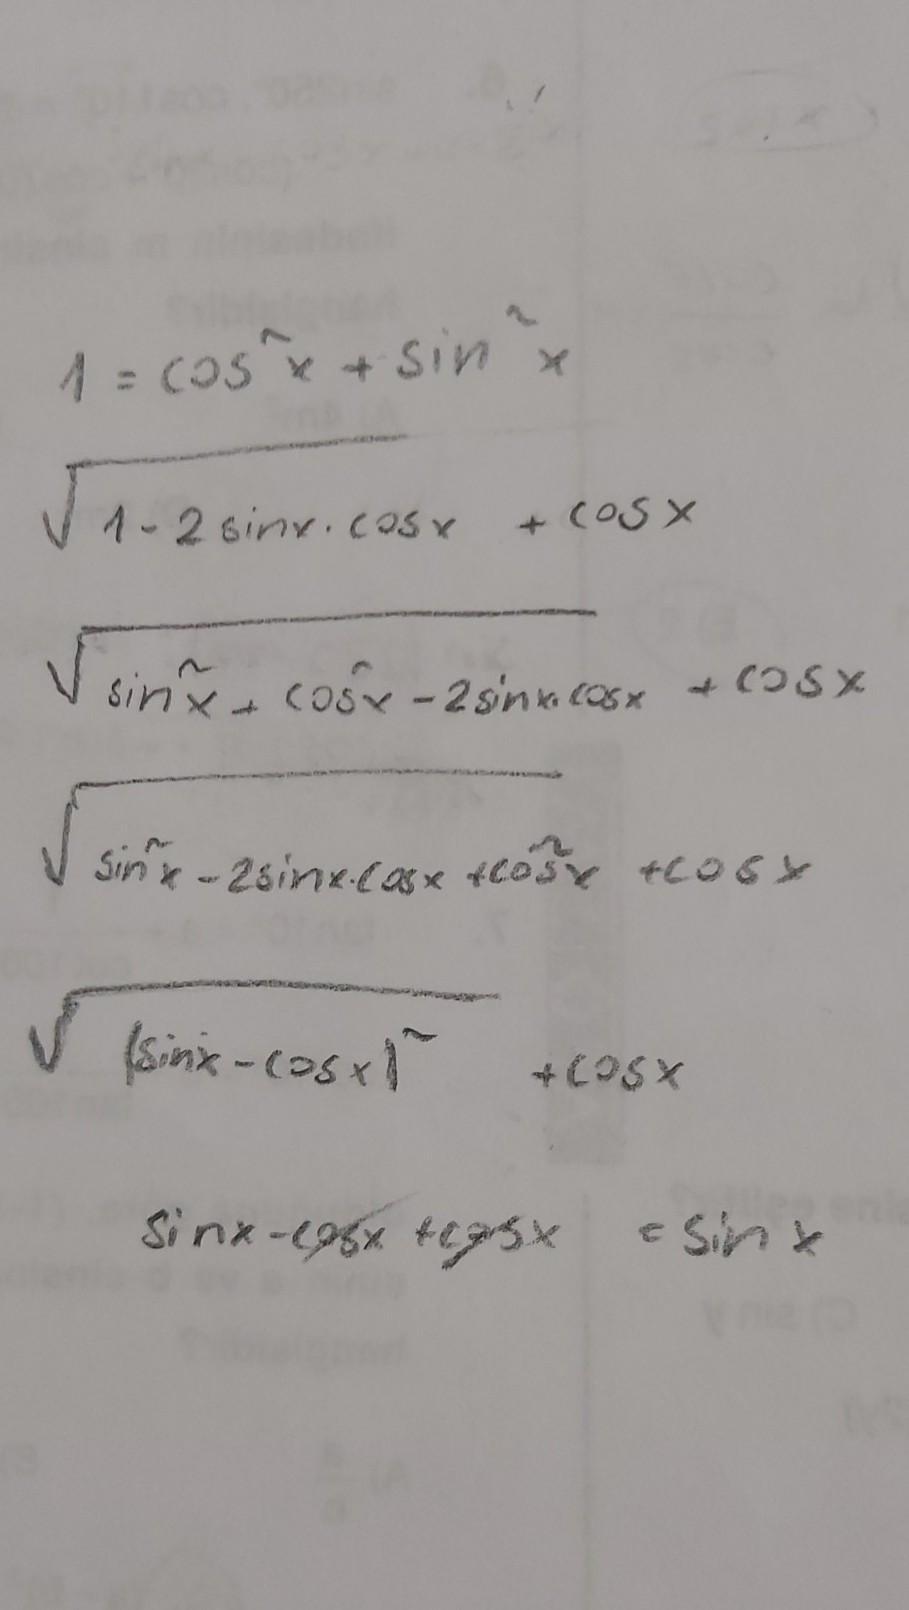 1 = cos²x + sin²x
√(1 - 2sinx·cosx) + cosx
√(sin²x + cos²x - 2sinx·cosx) + cosx
√(sin²x - 2sinx·cosx + cos²x) + cosx
√((sinx - cosx)²) + cosx
sinx - cosx + cosx = sinx